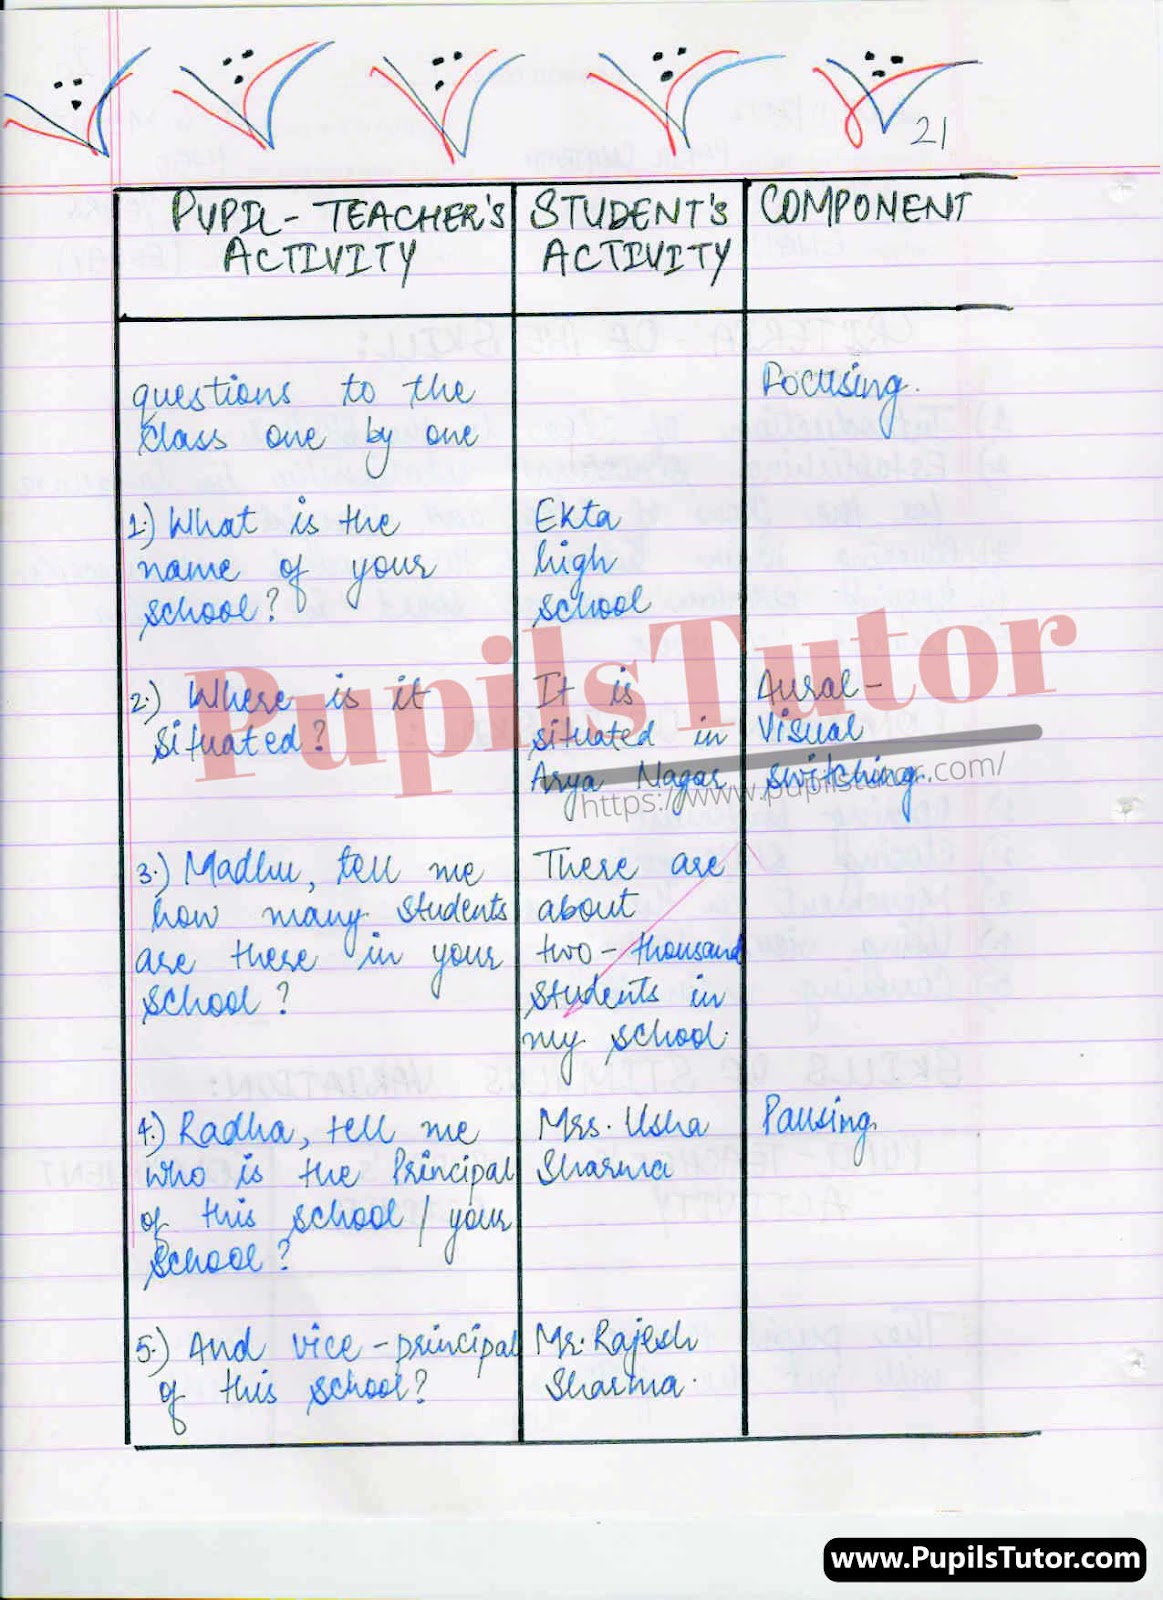 21
PUPIL - TEACHER'S
ACTIVITY
STUDENT'S
ACTIVITY
COMPONENT
questions to the
class one by one
Focusing.
1.) What is the
name of your
school?
Ekta
high
school
2.) Where is it
situated?
It is
situated in
Arya Nagar
Aural-
Visual
switching.
3.) Madhu, tell me
how many students
are there in your
school?
There are
about
two - thousand
students in
my school.
4.) Radha, tell me
who is the Principal
of this school / your
school?
Mrs. Usha
Sharma
Pausing.
5.) And vice - principal
of this school?
Mr. Rajesh
Sharma.
PupilsTutor
https://www.pupilstutor.com/
www.PupilsTutor.com